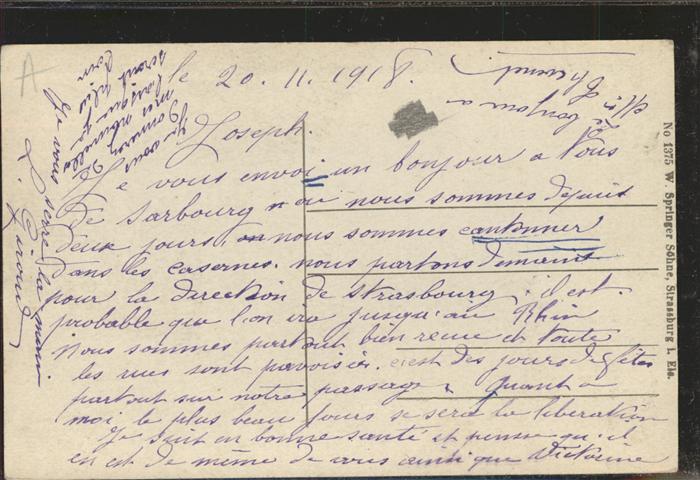 le 20. 11. 1918.
Joseph.
Je vous envoi un bonjour a tous
de Sarbourg ou nous sommes depuis
deux jours. nous sommes cantonner
dans les casernes. nous partons demain
pour la direction de Strasbourg, il est
probable que l'on ira jusqu'au Rhin
nous sommes partout bien recue et toute
les rues sont pavoisér. c'est des jours de fêtes
partout sur notre passage, quant a
moi le plus beau jours se sera la liberation
Je suit en bonne santé et pense qu'il
en est de même de vous ainsi que Victorine
Je vous
donnerai de
mes nouvelles
lorsque je
serait plus
loin
Je vous serre la main.
Giroud
le bonjour a
No 1375 W. Springer Söhne, Strassburg i. Els.
A